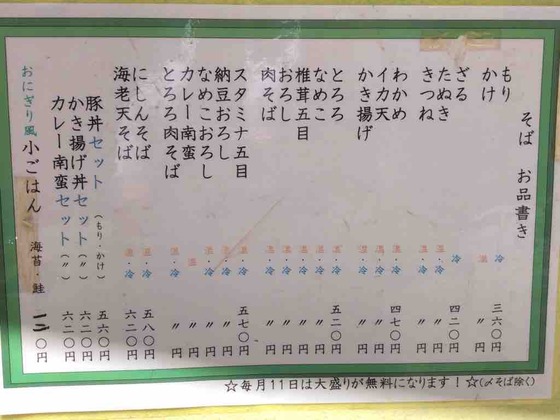 そば お品書き
もり 冷 三六〇円
かけ 温 〃円
ざる 冷 四二〇円
たぬき 温・冷 〃円
きつね 温・冷 〃円
わかめ 温・冷 四七〇円
イカ天 温・冷 〃円
かき揚げ 温・冷 〃円
とろろ 温・冷 五二〇円
なめこ 温・冷 〃円
椎茸五目 温・冷 〃円
おろし 温・冷 〃円
肉そば 温・冷 〃円
スタミナ五目 温・冷 五七〇円
納豆おろし 温・冷 〃円
なめこおろし 温・冷 〃円
カレー南蛮 温 〃円
とろろ肉そば 温・冷 〃円
にしんそば 温・冷 五八〇円
海老天そば 温・冷 六二〇円
豚丼セット(もり・かけ) 五六〇円
かき揚げ丼セット(〃) 六二〇円
カレー南蛮セット(〃) 六二〇円
おにぎり風小ごはん 海苔・鮭 一二〇円
☆毎月11日は大盛りが無料になります!☆(〆そば除く)